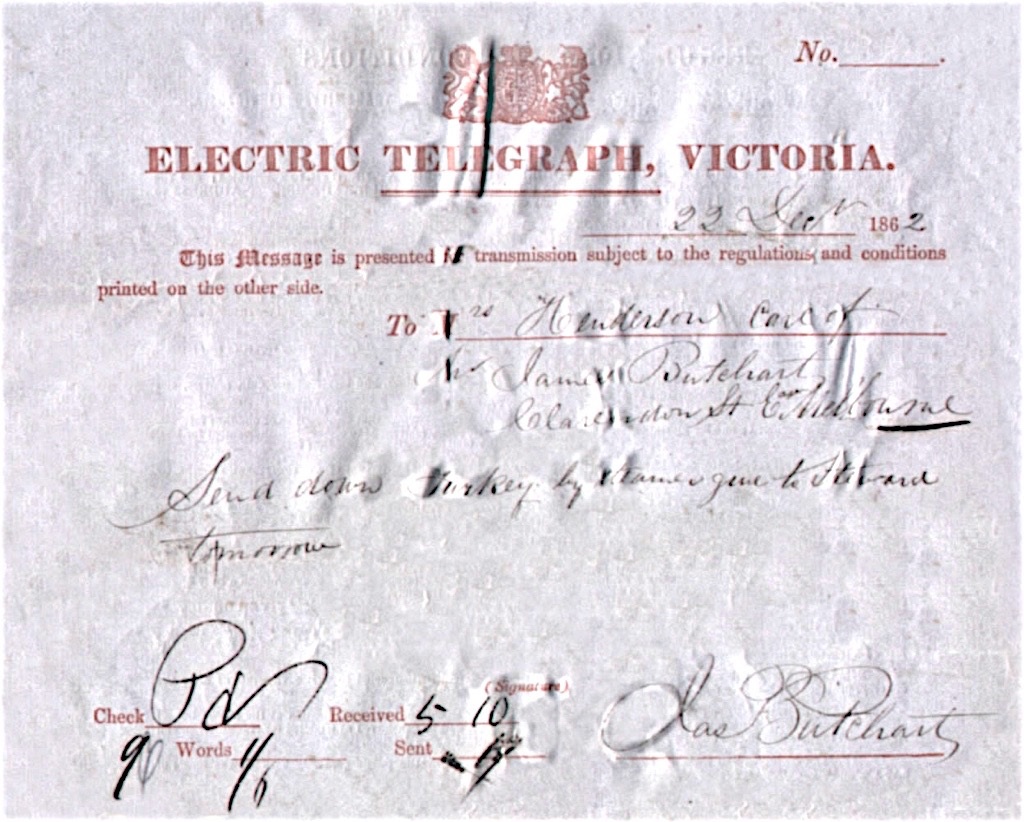 No.
ELECTRIC TELEGRAPH, VICTORIA.
22 Decr 1862
This Message is presented transmission subject to the regulations and conditions
printed on the other side.
To Mrs Henderson care of
Mr James Butchart
Clarendon St Ea Melbourne
Send down turkey by steamer give to Steward
tomorrow
(Signature)
Check Pd Received 5 10 Jas Butchart
Words 1/6 Sent